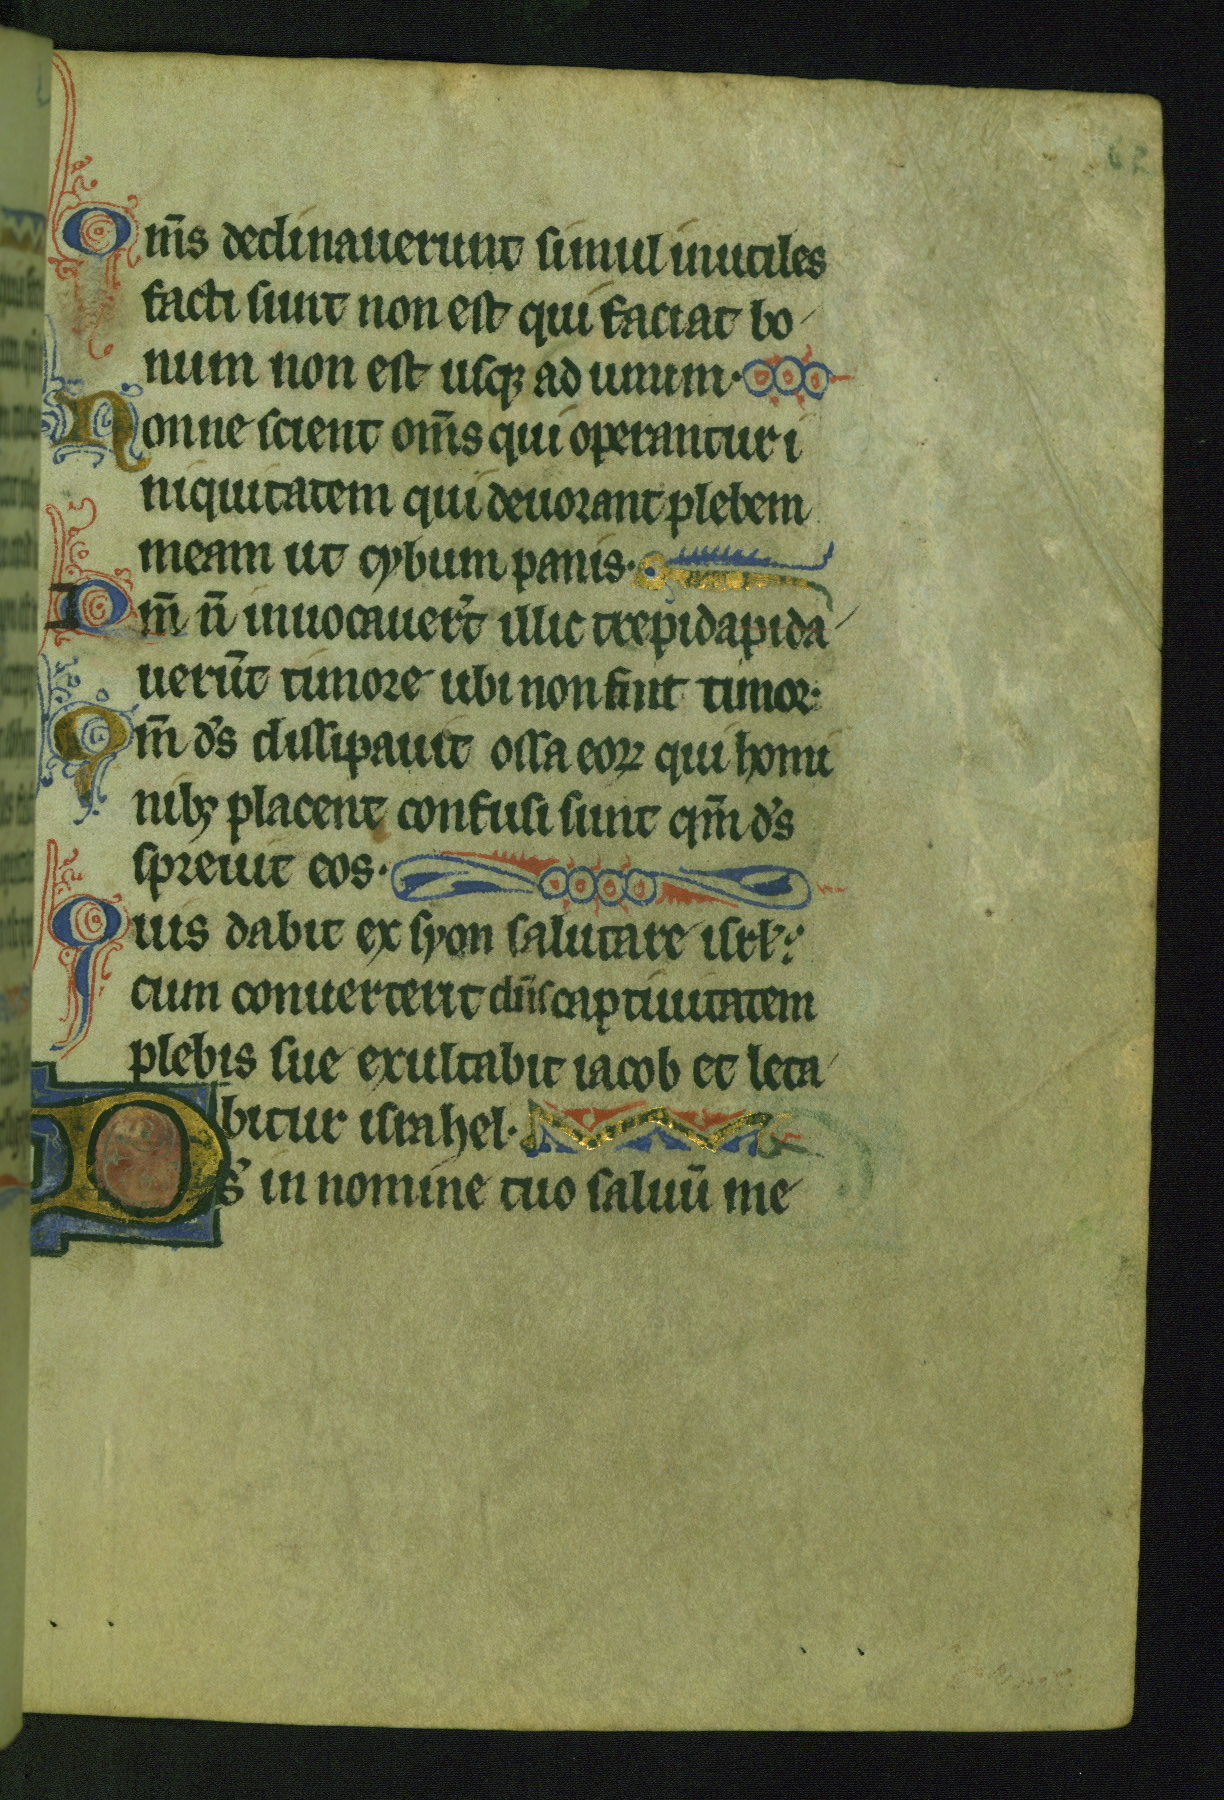 Om̄s declinauerunt simul inutiles
facti sunt non est qui faciat bo
num non est usqꝫ ad unum·
Nonne scient om̄s qui operantur i
niquitatem qui deuorant plebem
meam ut cybum panis·
Dm̄ n̄ inuocauer̄t illic trepidapida
uerūt timore ubi non fuit timor:
Qm̄ ds̄ dissipauit ossa eoꝝ qui homi
nibꝫ placent confusi sunt qm̄ ds̄
spreuit eos·
Quis dabit ex syon salutare isrł:
cum conuerterit dn̄s captiuitatem
plebis sue exultabit iacob et leta
bitur israhel·
Ds̄ in nomine tuo saluū me